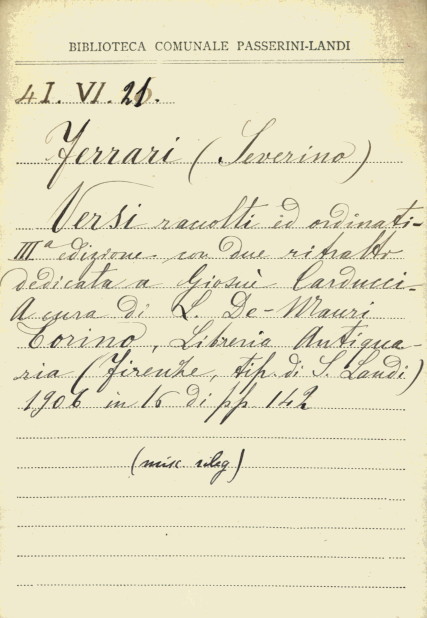 BIBLIOTECA COMUNALE PASSERINI-LANDI
4I. VI. 21.
Ferrari (Severino)
Versi raccolti ed ordinati-
IIIª edizione con due ritratti
dedicata a Giosuè Carducci-
A cura di L. De-Mauri
Torino, Libreria Antiqua-
ria (Firenze, tip. di S. Landi)
1906 in 16 di pp 142
(misc. rileg)